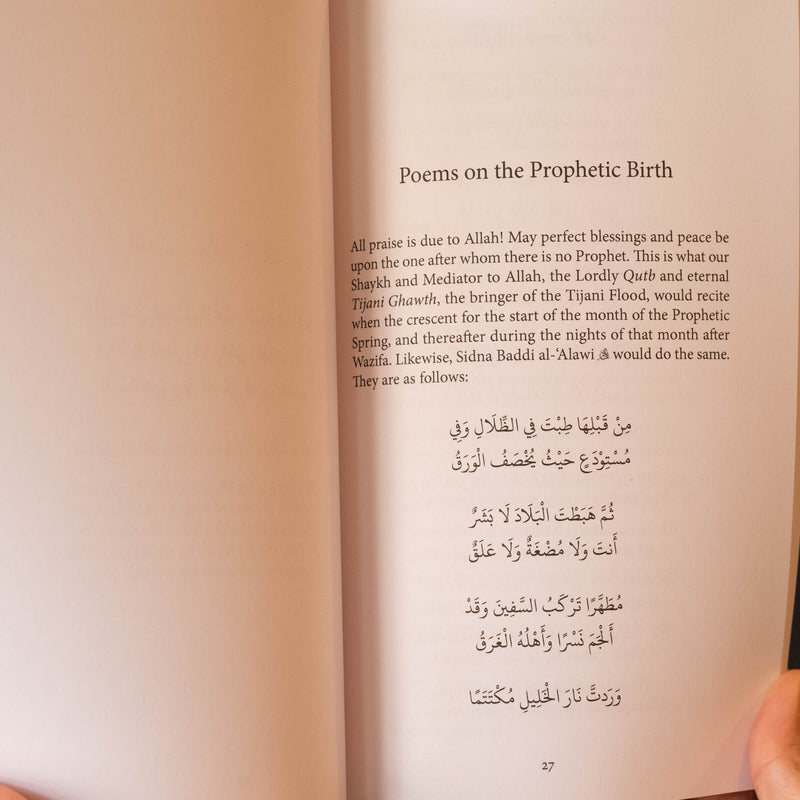 Poems on the Prophetic Birth
All praise is due to Allah! May perfect blessings and peace be
upon the one after whom there is no Prophet. This is what our
Shaykh and Mediator to Allah, the Lordly Qutb and eternal
Tijani Ghawth, the bringer of the Tijani Flood, would recite
when the crescent for the start of the month of the Prophetic
Spring, and thereafter during the nights of that month after
Wazifa. Likewise, Sidna Baddi al-‘Alawi would do the same.
They are as follows:
مِنْ قَبْلِهَا طِبْتَ فِي الظِّلَالِ وَفِي
مُسْتَوْدَعٍ حَيْثُ يُخْصَفُ الْوَرَقُ
ثُمَّ هَبَطْتَ الْبَلَادَ لَا بَشَرٌ
أَنتَ وَلَا مُضْغَةٌ وَلَا عَلَقٌ
مُطَهَّرًا تَرْكَبُ السَّفِينَ وَقَدْ
أَلْجَمَ نَسْرًا وَأَهْلُهُ الْغَرَقُ
وَرَدتَّ نَارَ الْخَلِيلِ مُكْتَتَمًا
27